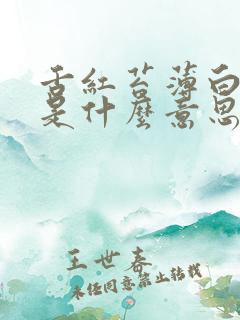 舌紅苔薄白
是什麼意思
王世春
未经同意禁止转载